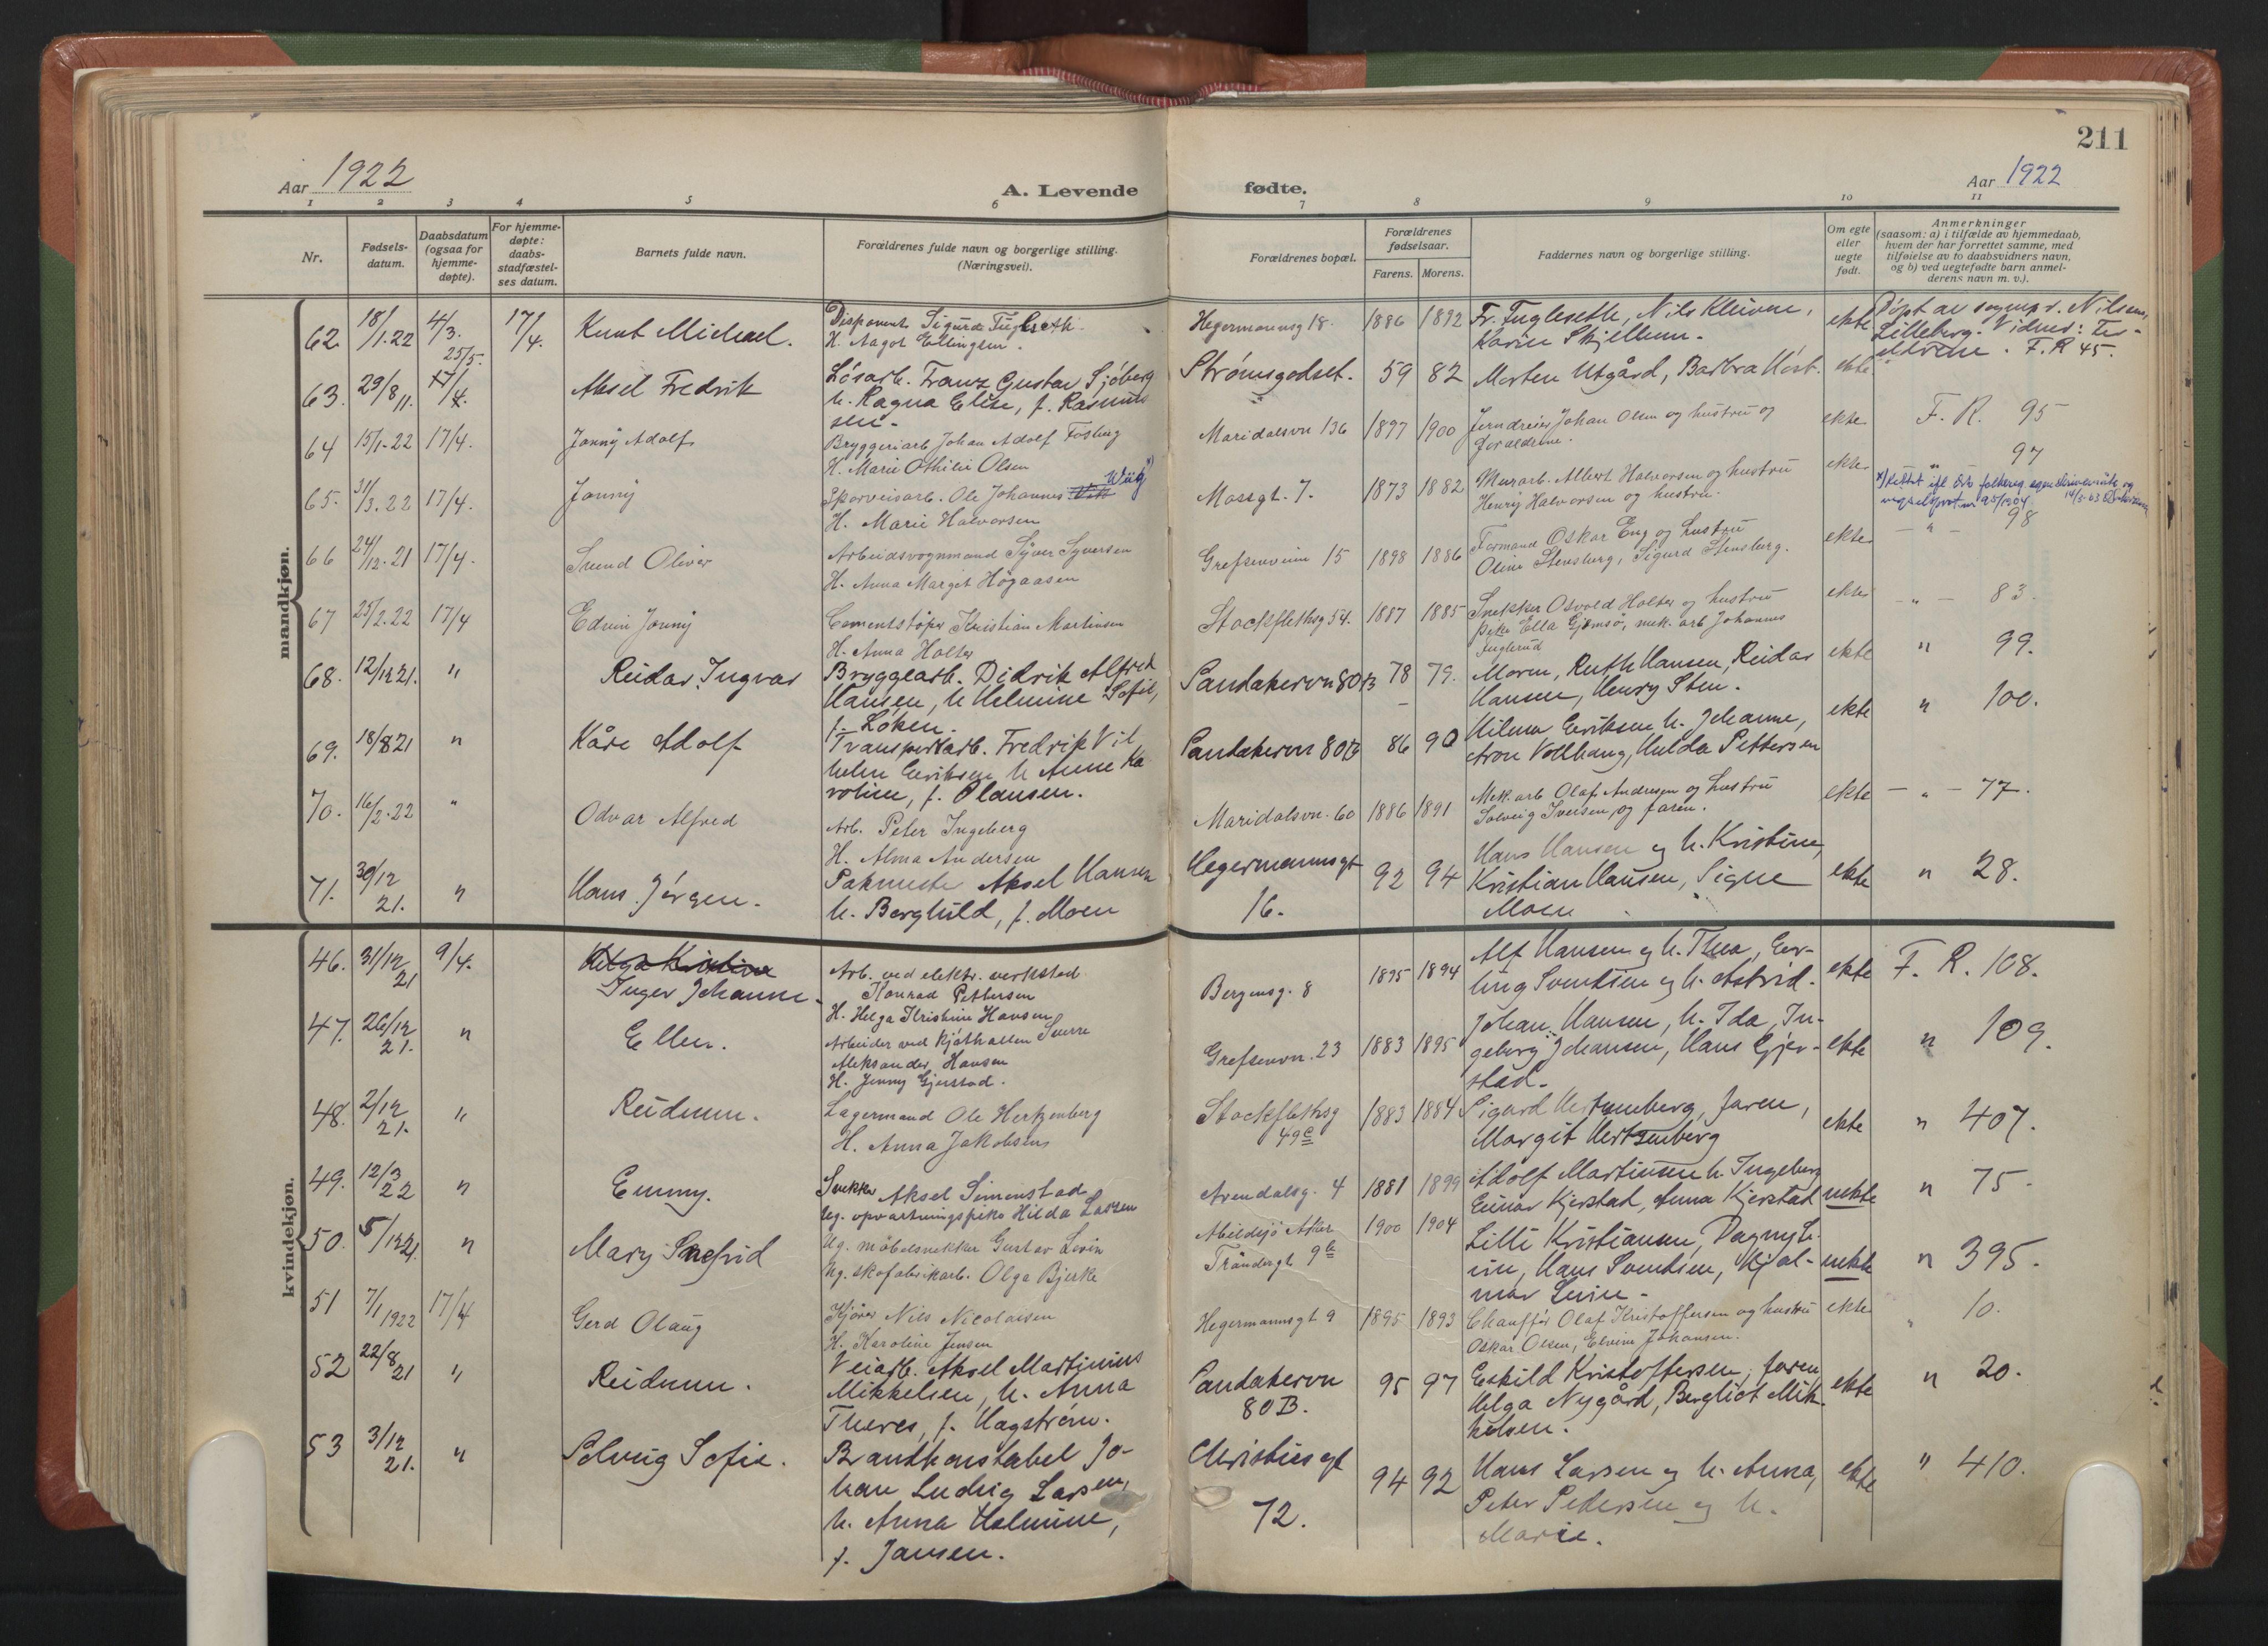 211
Aar 1922
A. Levende fødte.
Aar 1922
1 2 3 4 5 6 7 8 9 10 11
Nr.
Fødsels-
datum.
Daabsdatum
(ogsaa for
hjemme-
døpte).
For hjemme-
døpte:
daabs-
stadfæstel-
ses datum.
Barnets fulde navn.
Forældrenes fulde navn og borgerlige stilling.
(Næringsvei).
Forældrenes bopæl.
Forældrenes
fødselsaar.
Farens. Morens.
Faddernes navn og borgerlige stilling.
Om egte
eller
uegte
født.
Anmerkninger
(saasom: a) i tilfælde av hjemmedaab,
hvem der har forrettet samme, med
tilføielse av to daabsvidners navn,
og b) ved uegtefødte barn anmel-
derens navn m. v.).
mandkjøn.
62. 18/1.22 4/3. 17/4. Knut Michael.
Disponent Sigurd Fugleseth
H. Aagot Ellingsen.
Hegermannsg 18. 1886 1892
Fr. Fugleseth, Nils Kleivene,
Karin Skjellum.
ekte
Døpt av sognepr. Nilsen,
Lilleborg. Vidner: For-
eldrene. F.R 45.
63. 29/8 11. 25/5. 17/4. Aksel Fredrik
Løsarb. Franz Gustav Sjøberg
h. Ragna Elise, f. Rasmus
sen.
Strømsgodset. 59 82
Morten Utgård, Barbra Høst.
ekte
64 15/1-22 17/4. Jonny Adolf
Bryggeriarb. Johan Adolf Fosberg
H. Marie Othilie Olsen
Maridalsvn 136 1897 1900
Jerndreier Johan Olsen og hustru og
foreldrene.
ekte F. R. 95
65. 31/3.22 17/4. Jonny
Sporveisarb. Ole Johannes Vik Wiig x)
H. Marie Halvorsen
Mossgt. 7. 1873 1882
Murarb. Albert Halvorsen og hustru
Henry Halvorsen og hustru.
ekte " 97
66 24/12.21 17/4. Svend Oliver
Arbeidsvognmand Syver Syversen
H. Anna Margit Högaasen
Grefsenveien 15 1898 1886
Formand Oskar Eng og hustru
Oline Stensberg, Sigurd Stensberg.
ekte - " - 98
67 25/2.22 17/4 Edvin Jonny
Cementstøper Kristian Martinsen
H. Anna Holter
Stockflethsg 54. 1887 1885
Snekker Osvald Holter og hustru
pike Ella Gjemsø, mek. arb Johannes
Fuglerud
ekte - " - 83.
68. 12/12 21. " Reidar Ingvar
Bryggearb. Didrik Alfred
Hansen, h Helmine Sofie,
f. Løken.
Sandakervn 80B 78 79.
Moren, Ruth Hansen, Reidar
Hansen, Henry Sten.
ekte " 99.
69. 18/8 21 " Kåre Adolf
Transportarb. Fredrik Vil
helm Eriksen h Anne Ka
roline, f. Olausen.
Sandakervn 80B 86 90
Hilmar Eriksen h. Johanne,
Aron Vollhaug, Hulda Pettersen
ekte " 100.
70. 16/2.22 " Odvar Alfred
Arb. Peter Ingeberg
H. Alma Andersen
Maridalsvn. 60 1886 1891
Mek. arb Olaf Andresen og hustru
Solveig Iversen, og faren.
ekte - " - 77.
71. 30/12 21. " Hans Jørgen.
Pakmester Aksel Hansen
h. Berghild, f. Moen
Hegermannsgt
16. 92 94
Hans Hansen og h. Kristine,
Kristian Hansen, Signe
Moen
ekte " 28.
kvindekjøn.
46. 31/12 21 9/4. Helga Kristine
Inger Johanne.
Arb. ved elektr. verksted
Konrad Pettersen
H. Helga Kristine Hansen
Bergensg. 8 1895 1894
Alf Hansen og h. Thea, Er-
ling Svendsen og h. Astrid.
ekte F. R. 108.
47. 26/12 21. " Ellen.
Arbeider ved kjøthallen Sverre
Aleksander Hansen
H. Jenny Gjerstad.
Grefsenvn. 23 1883 1895
Johan Hansen, h. Ida, In-
geborg Johansen, Hans Gjer-
stad.
ekte " 109.
48. 2/12 21. " Reidunn.
Lagermand Ole Hertzenberg
H. Anna Jakobsen
Stockflethsg
49c 1883 1884
Sigurd Hertzenberg, faren,
Margit Hertzenberg
ekte " 407.
49. 12/3 22 " Emmy.
Snekker Aksel Simenstad
Ug. opvartningspike Hilda Larsen
Arendalsg. 4 1881 1899
Adolf Martinsen h. Ingeborg
Einar Kjerstad, Anna Kjerstad
uekte " 75
50. 5/12 21. " Mary Snefrid
Ug. møbelsnekker Gustav Levin
Ug. skofabrikarb. Olga Bjerke
Abildsø Aker
Trøndergt 9b 1900 1904
Lilli Kristiansen, Dagny Le-
vin, Hans Svendsen, Hjal-
mar Levin.
uekte " 395.
51 7/1 1922 17/4 Gerd Olaug
Kjører Nils Nicolaisen
H. Karoline Jensen
Hegermannsgt 9 1895 1893
Chauffør Olaf Kristoffersen og hustru
Oskar Olsen, Elvine Johansen.
ekte " 10.
52 22/8 21 " Reidunn.
Veiarb. Aksel Martinius
Mikkelsen, h. Anna
Theres, f. Hagstrøm.
Sandakervn
80B. 95 97
Eskild Kristoffersen, faren,
Helga Nygård, Bergliot Mik
kelsen.
ekte " 20.
53 3/12 21. " Solveig Sofie.
Brandkonstabel Jo-
han Ludvig Larsen,
h. Anna Halmine,
f. Jansen.
Christiesgt
72. 94 92
Hans Larsen og h. Anna,
Peter Pedersen og h.
Marie.
ekte " 410.